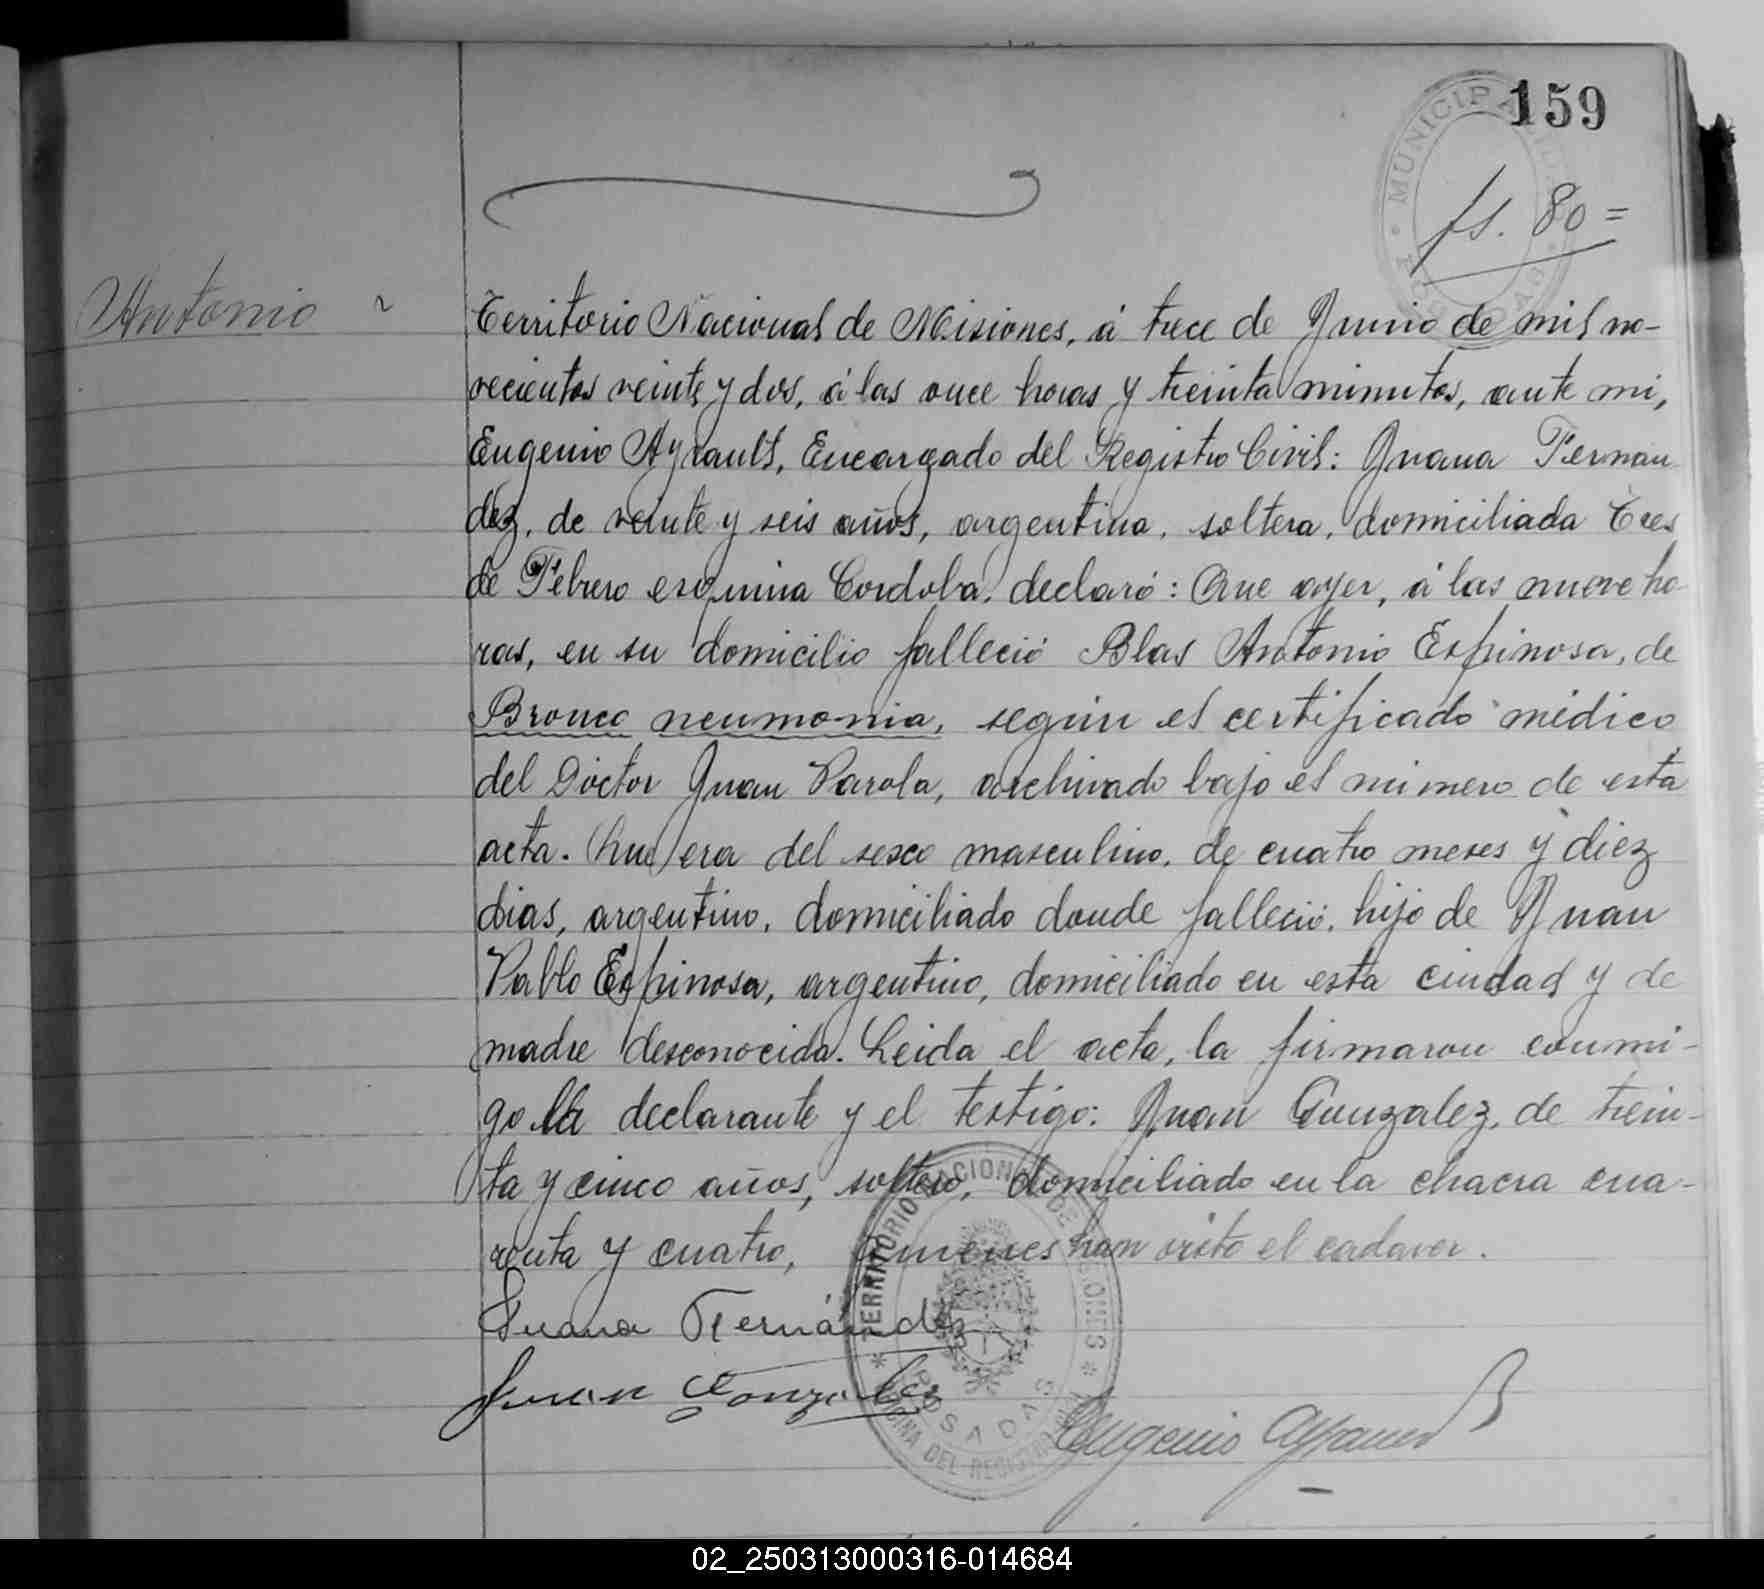 159
MUNICIPALIDAD
fs. 80=
Antonio
Territorio Nacional de Misiones, á trece de Junio de mil no-
vecientos veinte y dos, á las once horas y treinta minutos, ante mi,
Eugenio Ayrault, Encargado del Registro Civil: Juana Fernan
dez, de veinte y seis años, argentina, soltera, domiciliada Tres
de Febrero esquina Cordoba, declaró: Que ayer, á las nueve ho-
ras, en su domicilio falleció Blas Antonio Espinosa, de
Bronco neumonia, según el certificado médico
del Doctor Juan Parola, archivado bajo el número de esta
acta. Que era del sexo masculino, de cuatro meses y diez
dias, argentino, domiciliado donde falleció, hijo de Juan
Pablo Espinosa, argentino, domiciliado en esta ciudad y de
madre desconocida. Leida el acta, la firmaron conmi-
go la declarante y el testigo: Juan Gonzalez, de trein-
ta y cinco años, soltero, domiciliado en la chacra cua-
renta y cuatro, quienes han visto el cadaver.
Juana Fernández
Juan Gonzalez
Eugenio Ayrault
TERRITORIO NACIONAL DE MISIONES
OFICINA DEL REGISTRO CIVIL
POSADAS
02_250313000316-014684